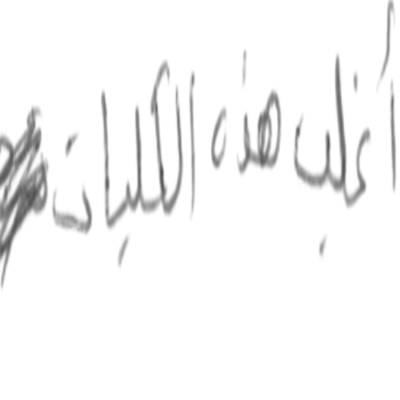 أغلب هذه الكليات